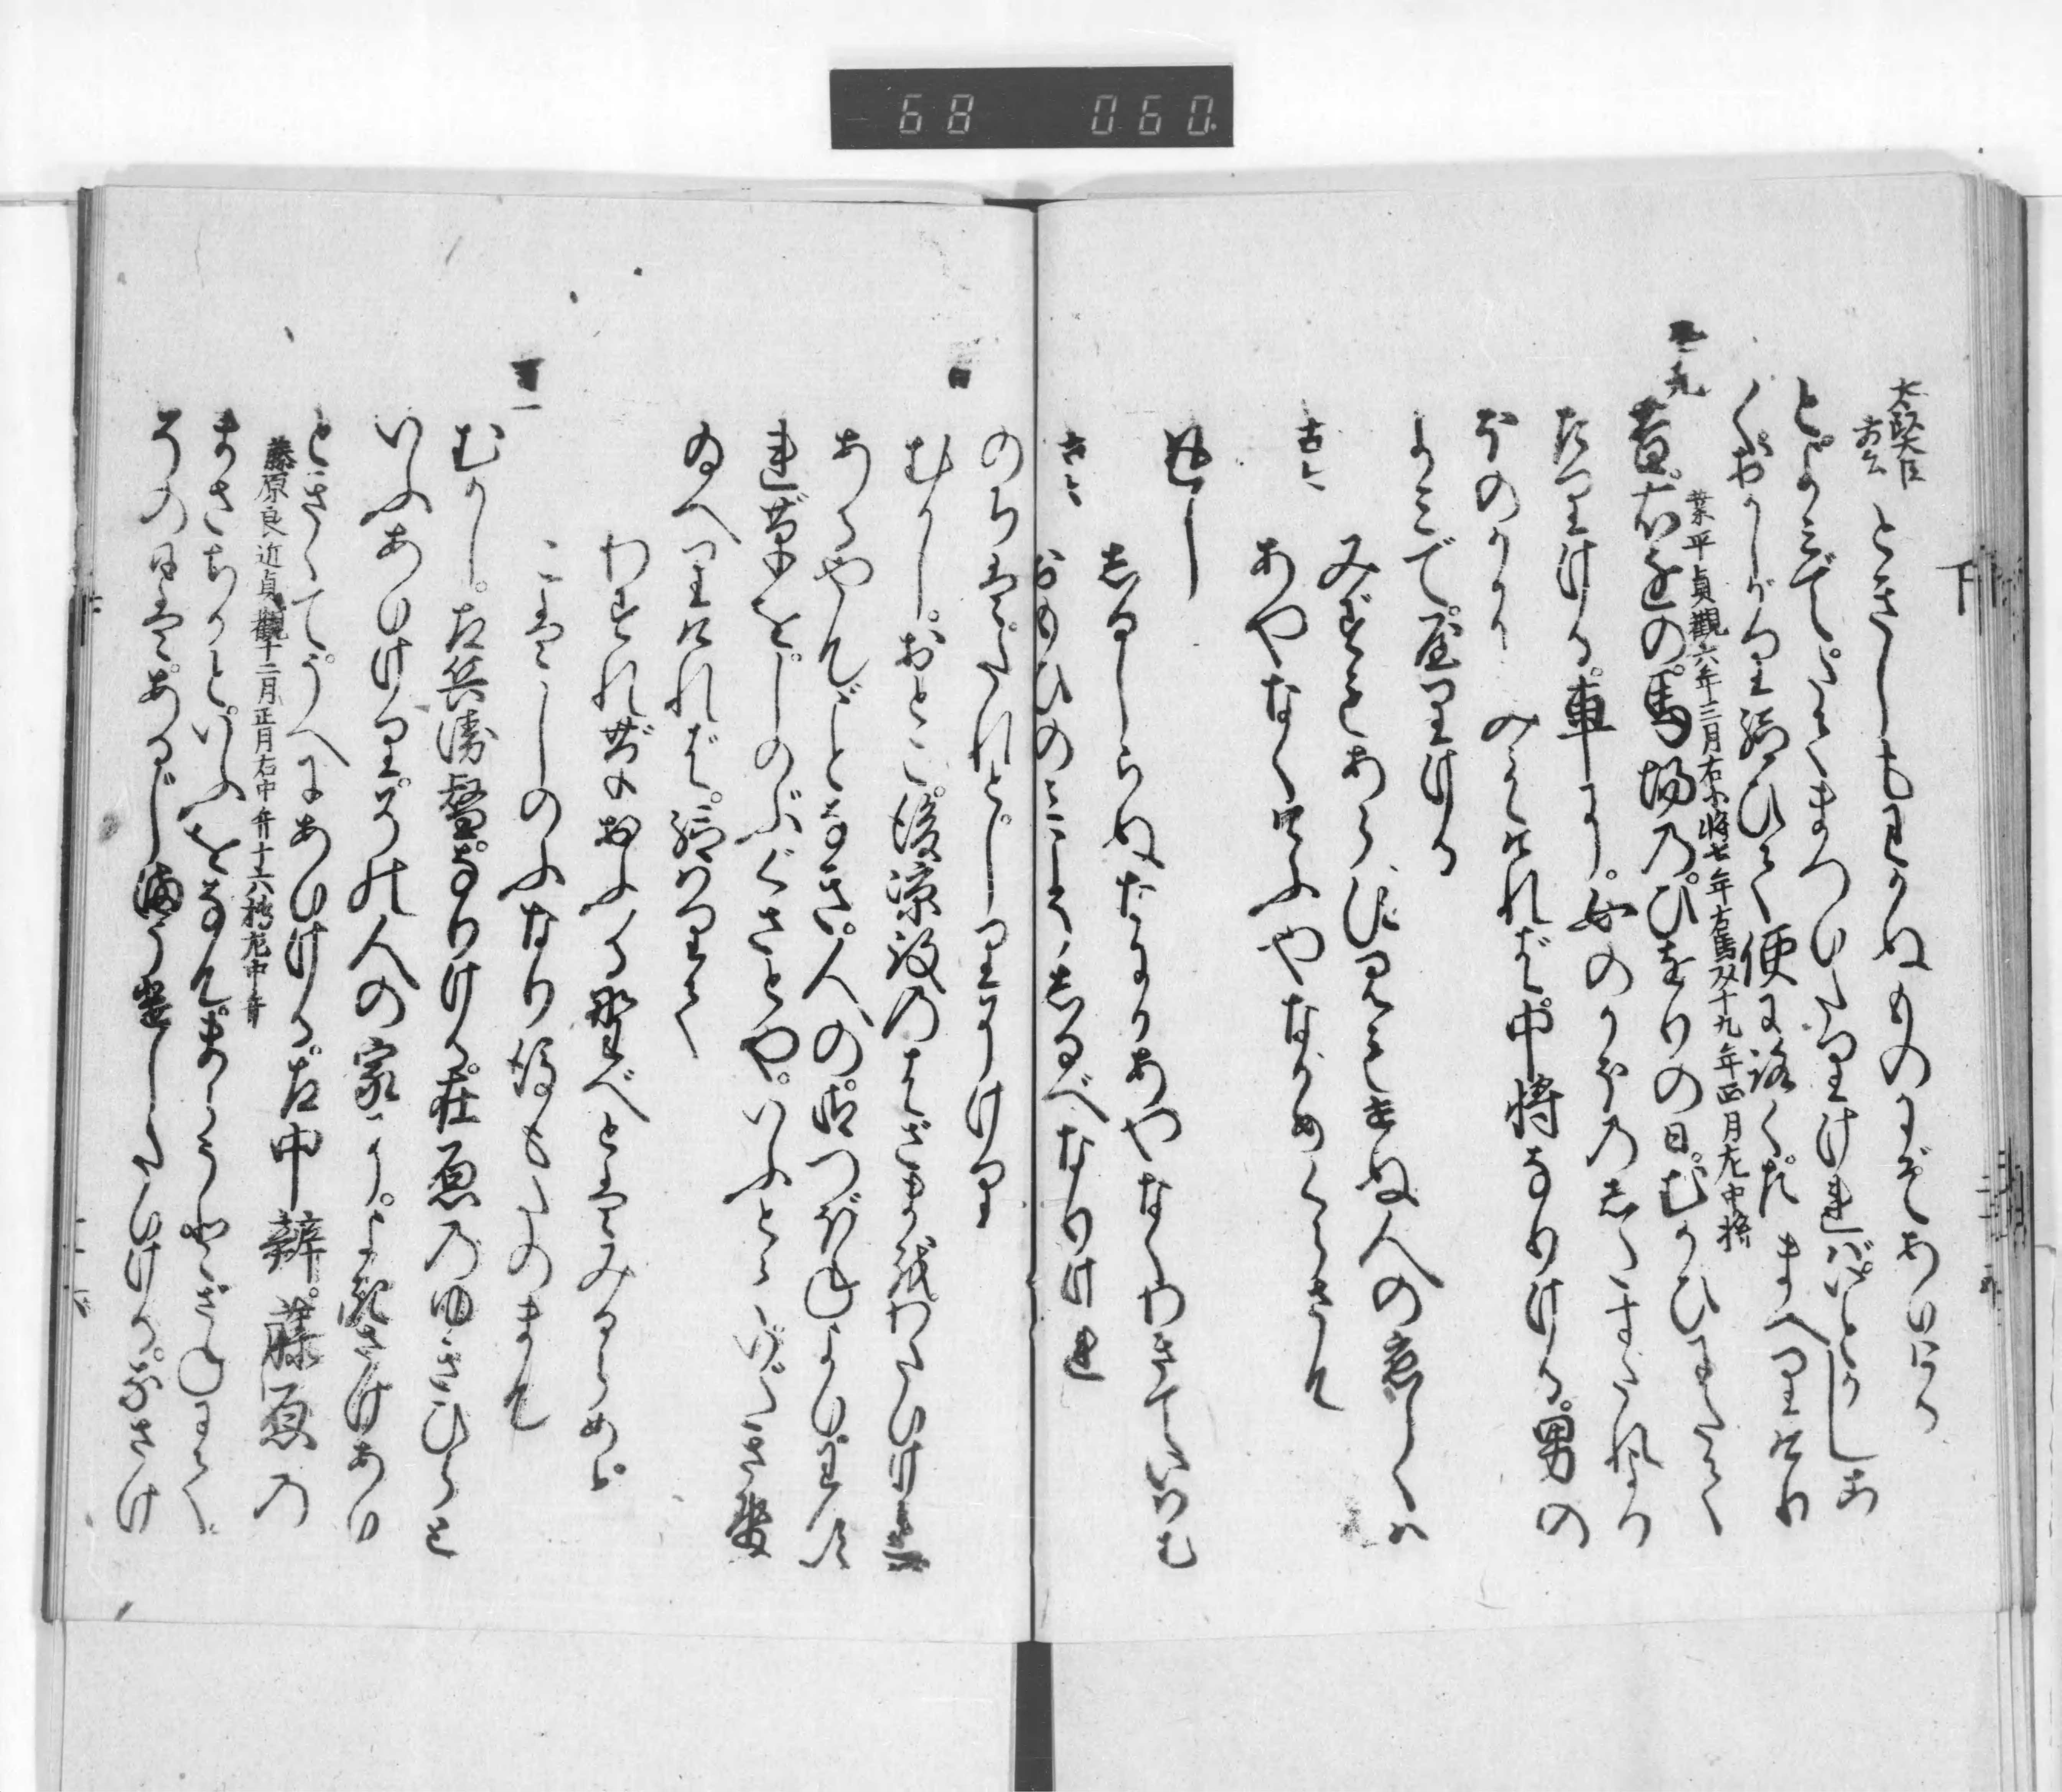 68 060
下
太政大臣
ときしもわかぬものにぞありける
とよみてたてまつりたりければいとかしこ
くおかしがり給ひて使に禄くだまへりけり
九
業平貞觀六年三月右少将七年右馬頭十九年正月左中将
昔右近の馬場のひをりの日むかひにたて
たりける車に女のかほのしたすだれより
ほのかにみえければ中将なりける男の
よみてやりける
みずもあらず見もせぬ人の恋しくは
古今
あやなくけふやながめくらさむ
返し
しるしらぬなにかあやなくわきていはむ
古今
おもひのみこそしるべなりけれ
のちはたれとしりにけり
むかしおとこ後涼殿のはざまをわたりければ
あるやんごとなき人の御つぼねよりわす
れ草をしのぶぐさとやいふとていださせ
給へりければ給はりて
わすれ草おふる野べとはみるらめど
こはしのぶなり後もたのまむ
むかし左兵衛督なりける在原のゆきひらと
いふありけりその人の家によきさけあり
ときゝてうへにありける左中辨藤原の
藤原良近貞觀十二月正月右中弁十六移左中弁
まさちかといふをなむまらうどざねにて
その日はあるじまうけしたりけるなさけ